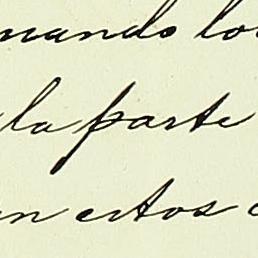 mando lo
la parte
en estos